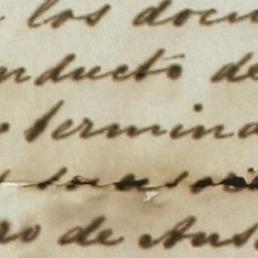 los docu
nducto de
termina
ro de Aus